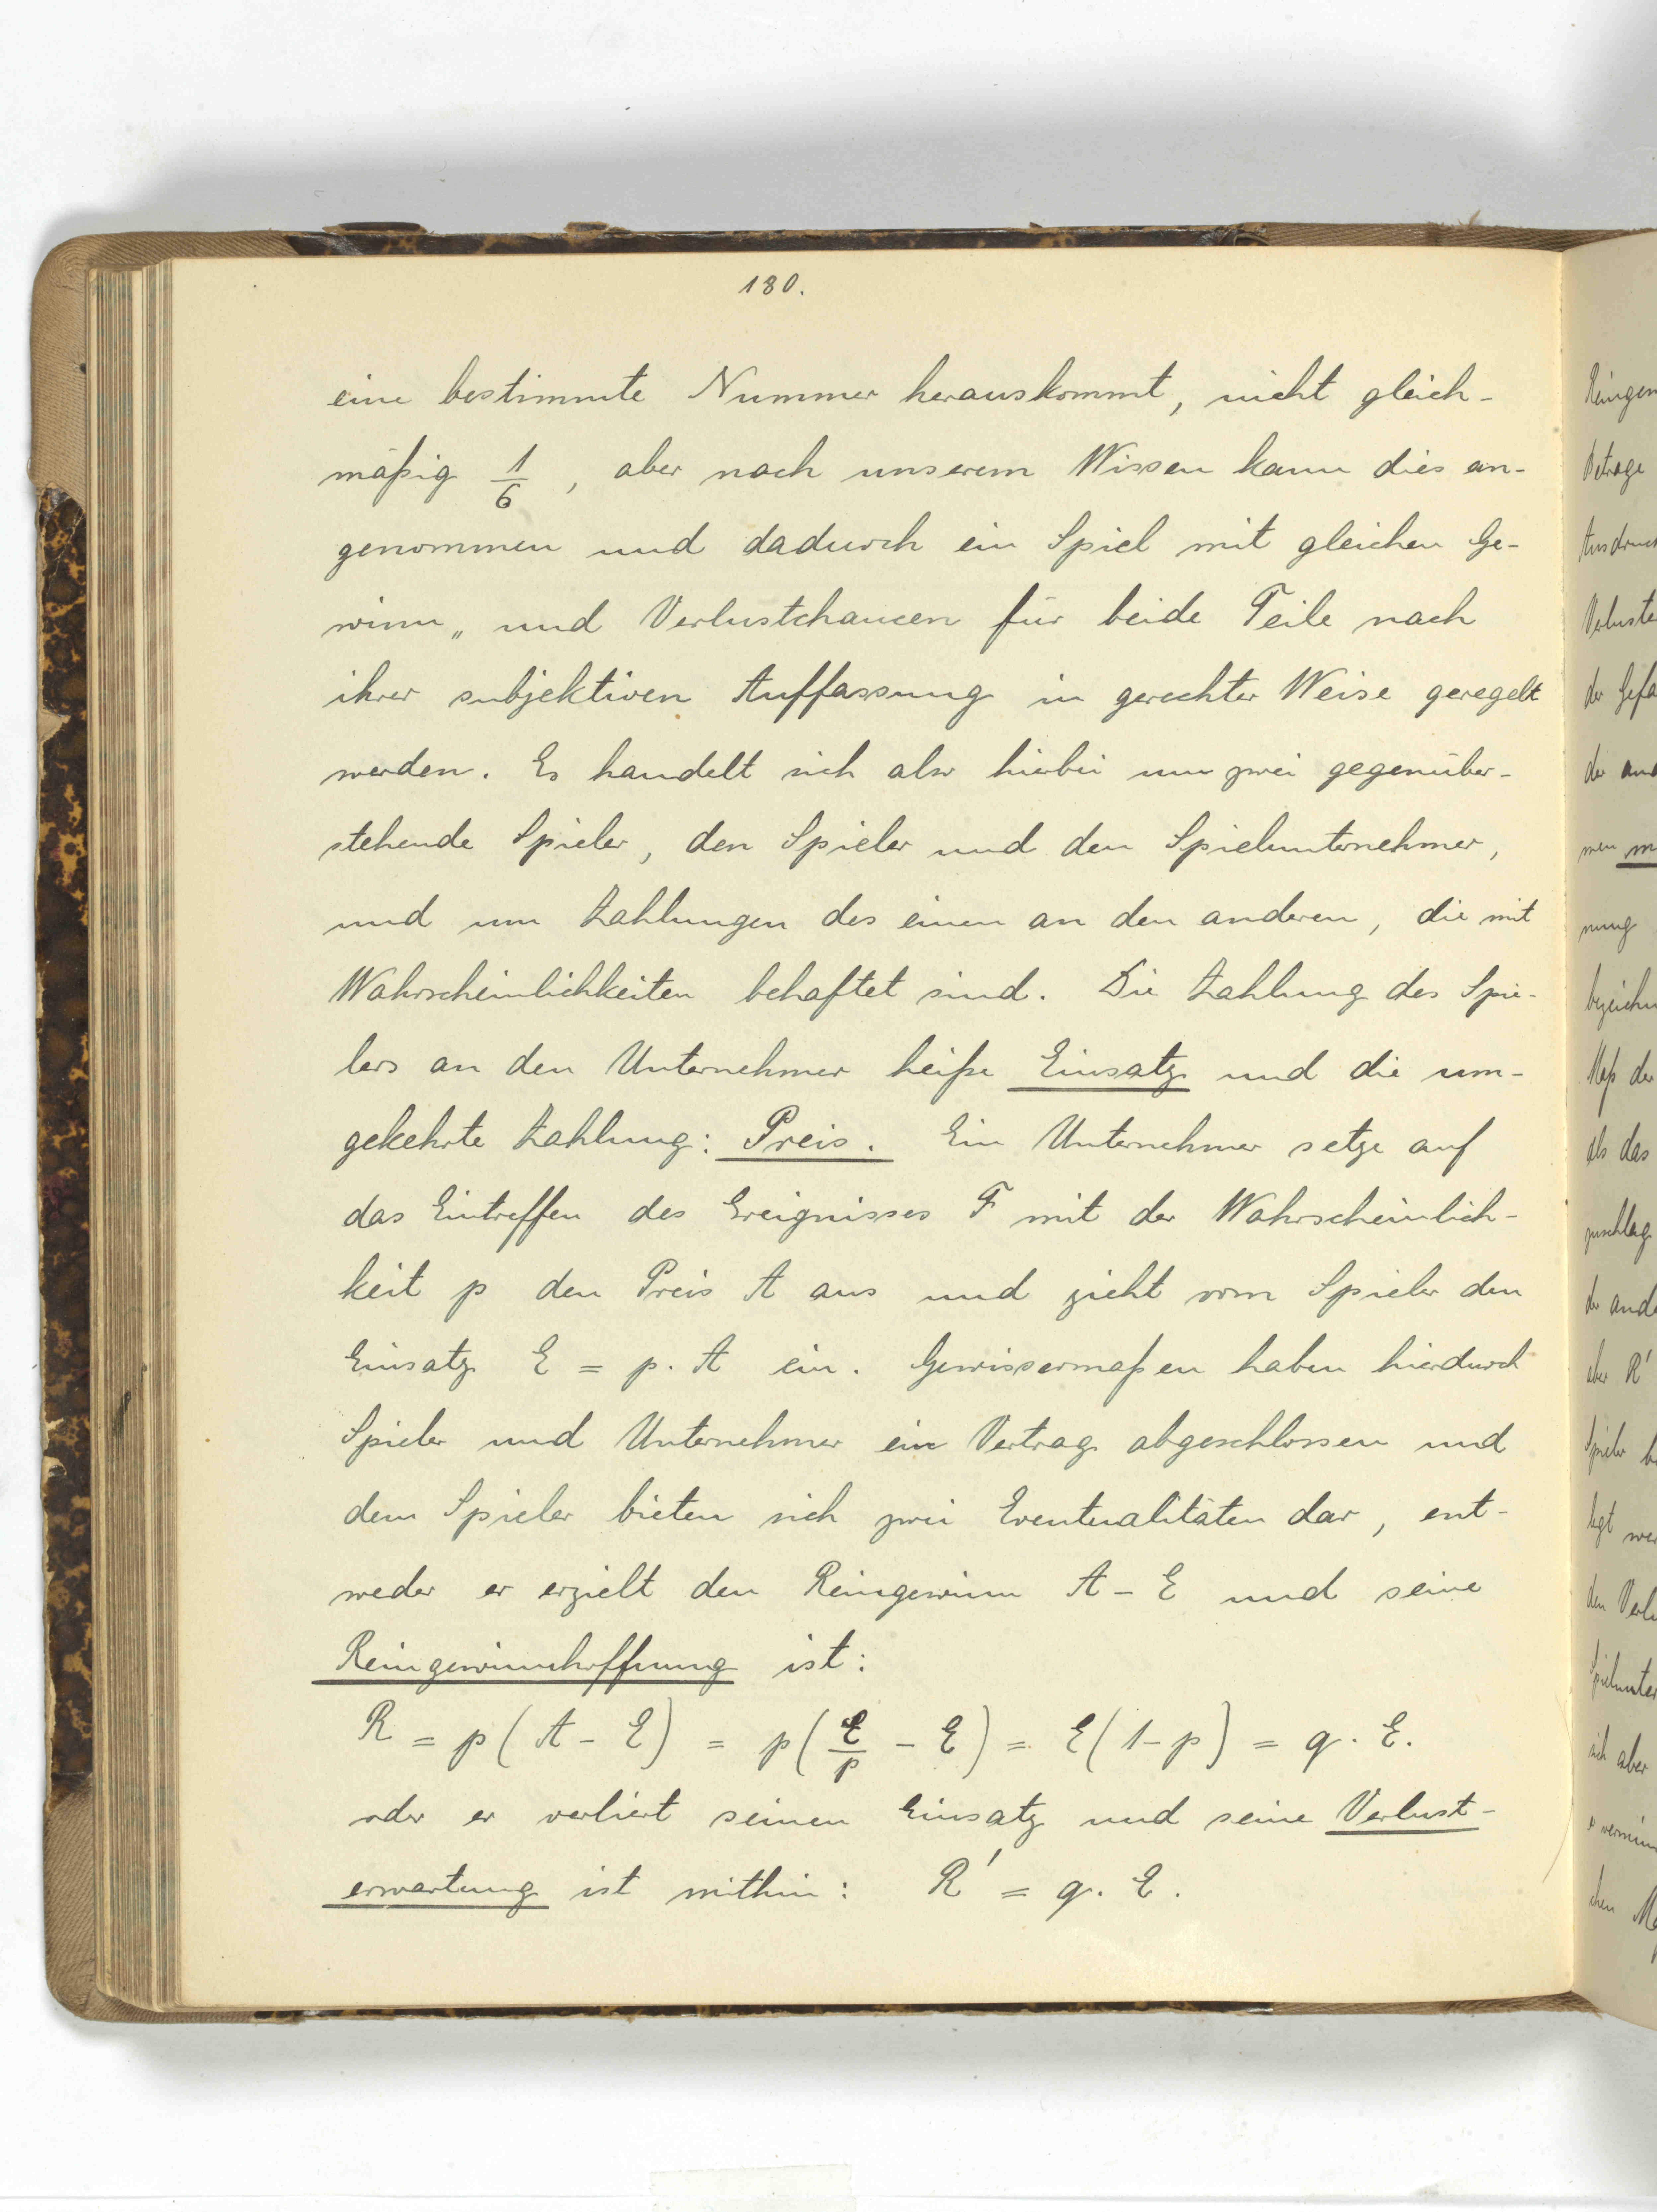 180.
eine bestimmte Nummer herauskommt, nicht gleich-
mäßig 1/6, aber nach unserem Wissen kann dies an-
genommen und dadurch ein Spiel mit gleichen Ge-
winn „ und Verlustchancen für beide Teile nach
ihrer subjektiven Auffassung in gerechter Weise geregelt
werden. Es handelt sich also hierbei um zwei gegenüber-
stehende Spieler, den Spieler und den Spielunternehmer,
und um Zahlungen des einen an den anderen, die mit
Wahrscheinlichkeiten behaftet sind. Die Zahlung des Spie-
lers an den Unternehmer heiße Einsatz und die um-
gekehrte Zahlung: Preis. Ein Unternehmer setze auf
das Eintreffen des Ereignisses F mit der Wahrscheinlich-
keit p den Preis A aus und zieht vom Spieler den
Einsatz E = p. A ein. Gewissermaßen haben hierdurch
Spieler und Unternehmer ein Vertrag abgeschlossen und
dem Spieler bieten sich zwei Eventualitäten dar, ent-
weder er erzielt den Reingewinn A - E und seine
Reingewinnhoffnung ist:
R = p(A - E) = p(E/p - E) = E(1-p) = q. E.
oder er verliert seinen Einsatz und seine Verlust-
erwartung ist mithin: R' = q. E.
Betrage
als das
aber R'
sich aber